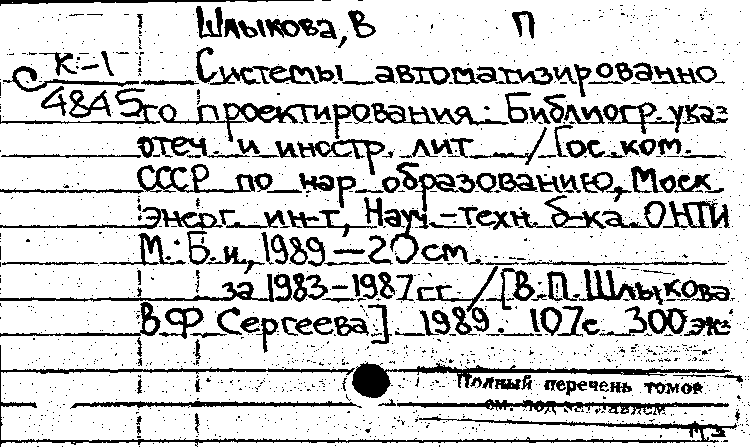 Шлыкова, В П
С К-1 Системы автоматизированно
4845 го проектирования: Библиогр. указ
отеч. и иностр. лит. / Гос. ком.
СССР по нар образованию, Моск
Энерг. ин-т, Науч.-техн. б-ка. ОНТИ
М.: Б. и., 1989 – 20 см.
за 1983-1987 гг. / [В. П. Шлыкова
В. Ф. Сергеева]. 1989. 107с 300 экз
Полный перечень томов
см. под заглавием